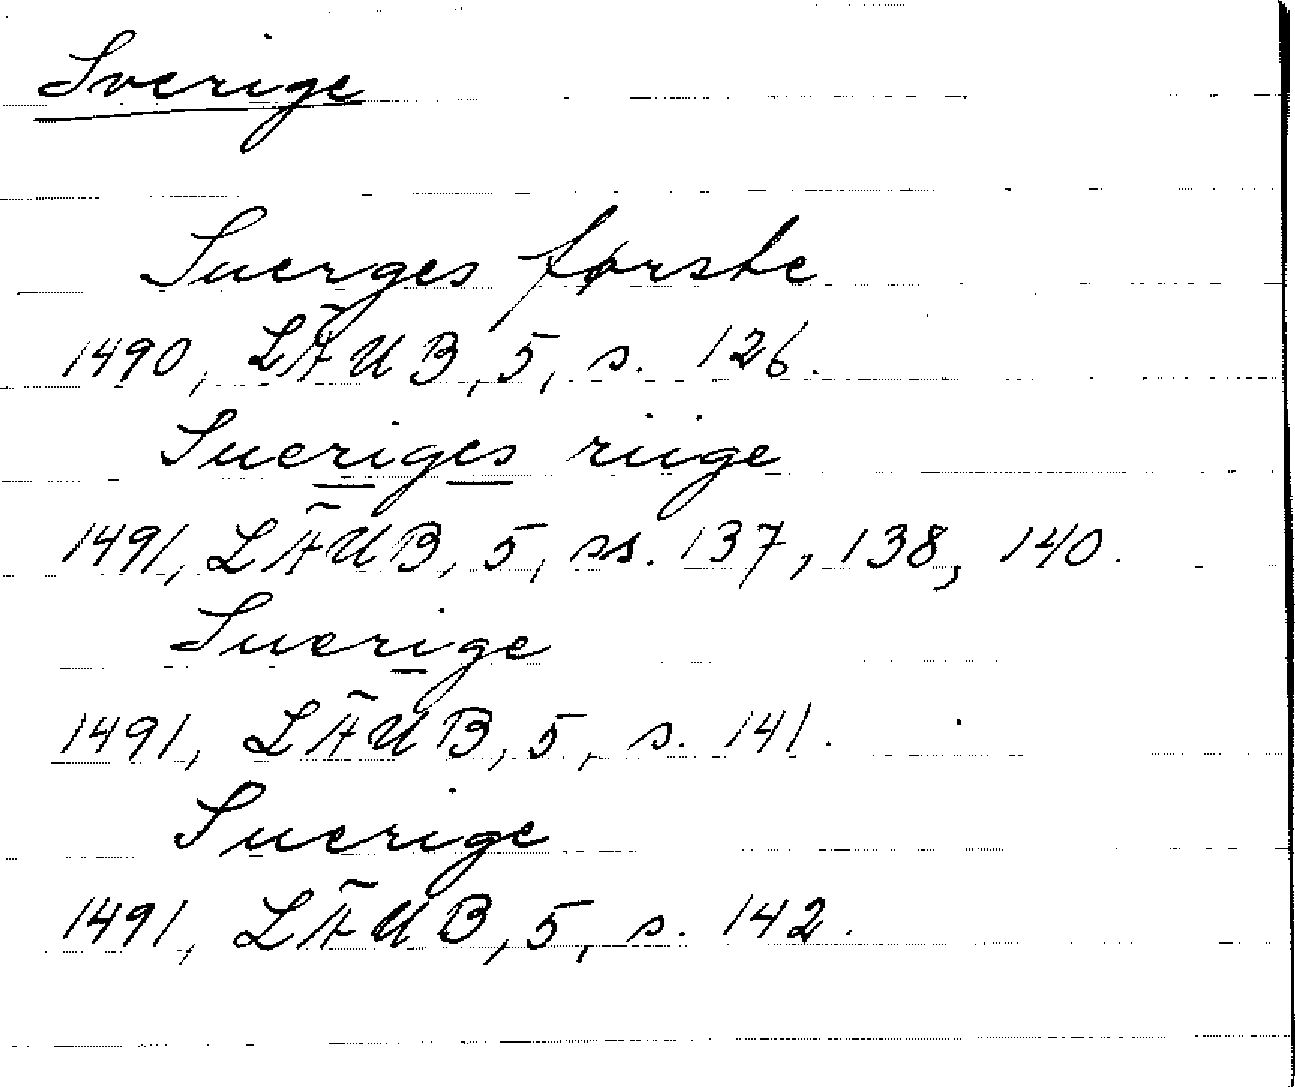 Sverige
Suerges første
1490, LÄUB, 5, s. 126.
Sueriges riige
1491, LÄUB, 5, ss. 137, 138, 140.
Suerige
1491, LÄUB, 5, s. 141.
Suerige
1491, LÄUB, 5, s. 142.